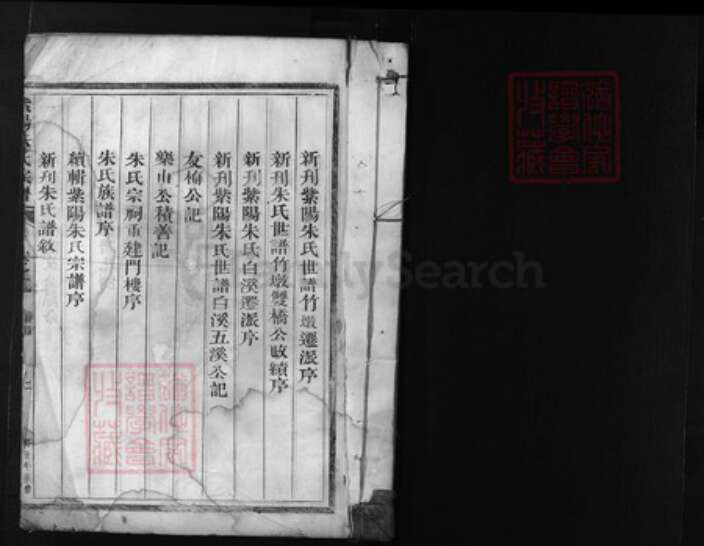 新刋紫陽朱氏世譜竹墩遷派序
新刋朱氏世譜竹墩雙橋公跋績序
新刋紫陽朱氏白溪遷派序
新刋紫陽朱氏世譜白溪五溪公記
友梅公記
樂山公積善記
朱氏宗祠重建門樓序
朱氏族譜序
續輯紫陽朱氏宗譜序
新刋朱氏譜敘
FamilySearch